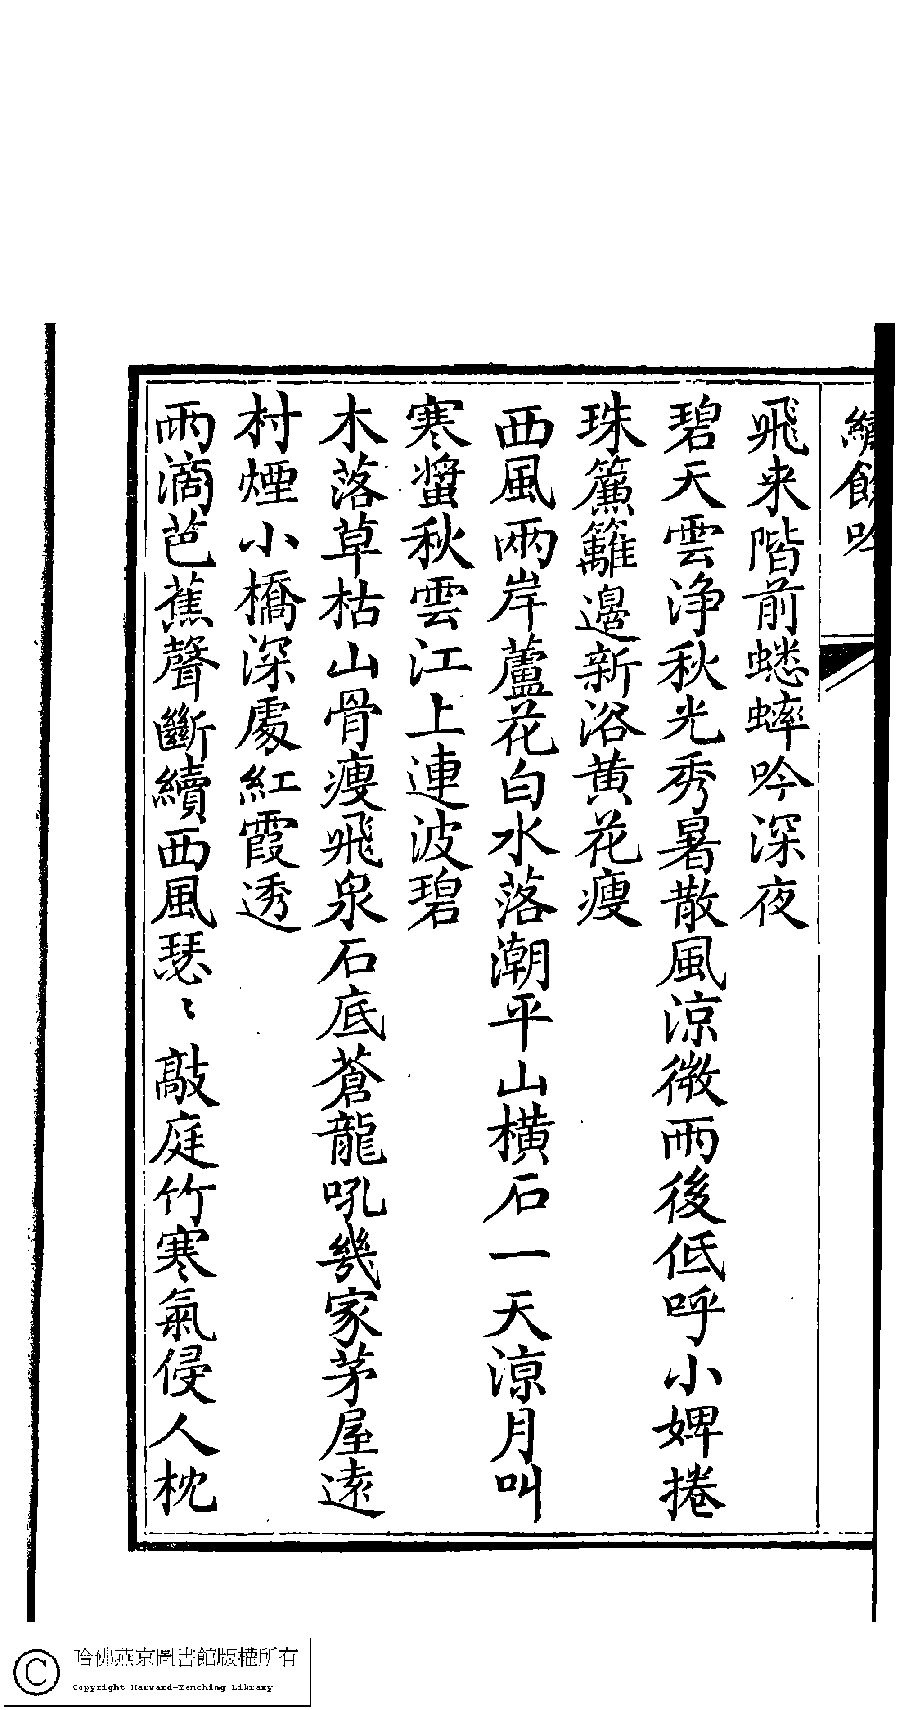 續餘吟
飛来階前蟋蟀吟深夜
碧天雲浄秋光秀暑散風涼微雨後低呼小婢捲
珠簾籬邊新浴黄花瘦
西風兩岸蘆花白水落潮平山橫石一天涼月叫
寒螿秋雲江上連波碧
木落草枯山骨瘦飛泉石底蒼龍吼幾家茅屋遠
村煙小橋深處紅霞透
雨滴芭蕉聲斷續西風瑟〻敲庭竹寒氣侵人枕
哈佛燕京圖書館版權所有
Copyright Harvard-Yenching Library